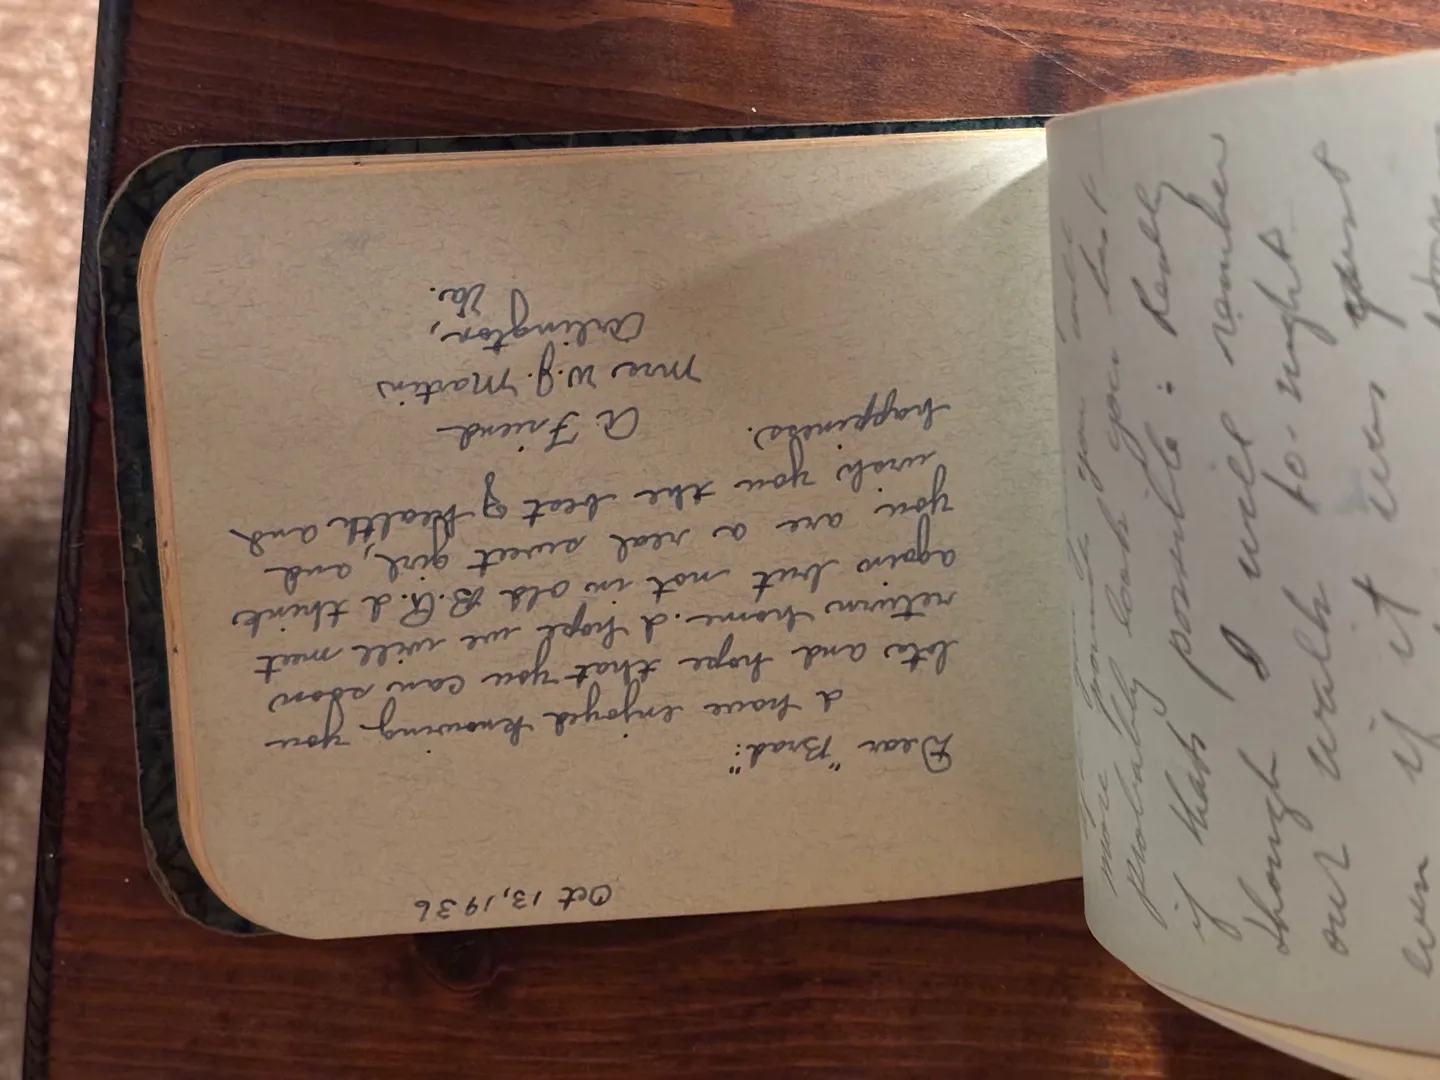 Oct 13, 1936
Dear "Brad":
I have enjoyed knowing you
lots and hope that you can soon
return home. I hope we will meet
again but not in old B.R. I think
you are a real sweet girl, and
wish you the best of health and
happiness.
A. Friend
Mrs W.J. Martin
Arlington,
Va.
more
probably look you
if thats possible: Really
though I will remember
our walk to-night
even if it was